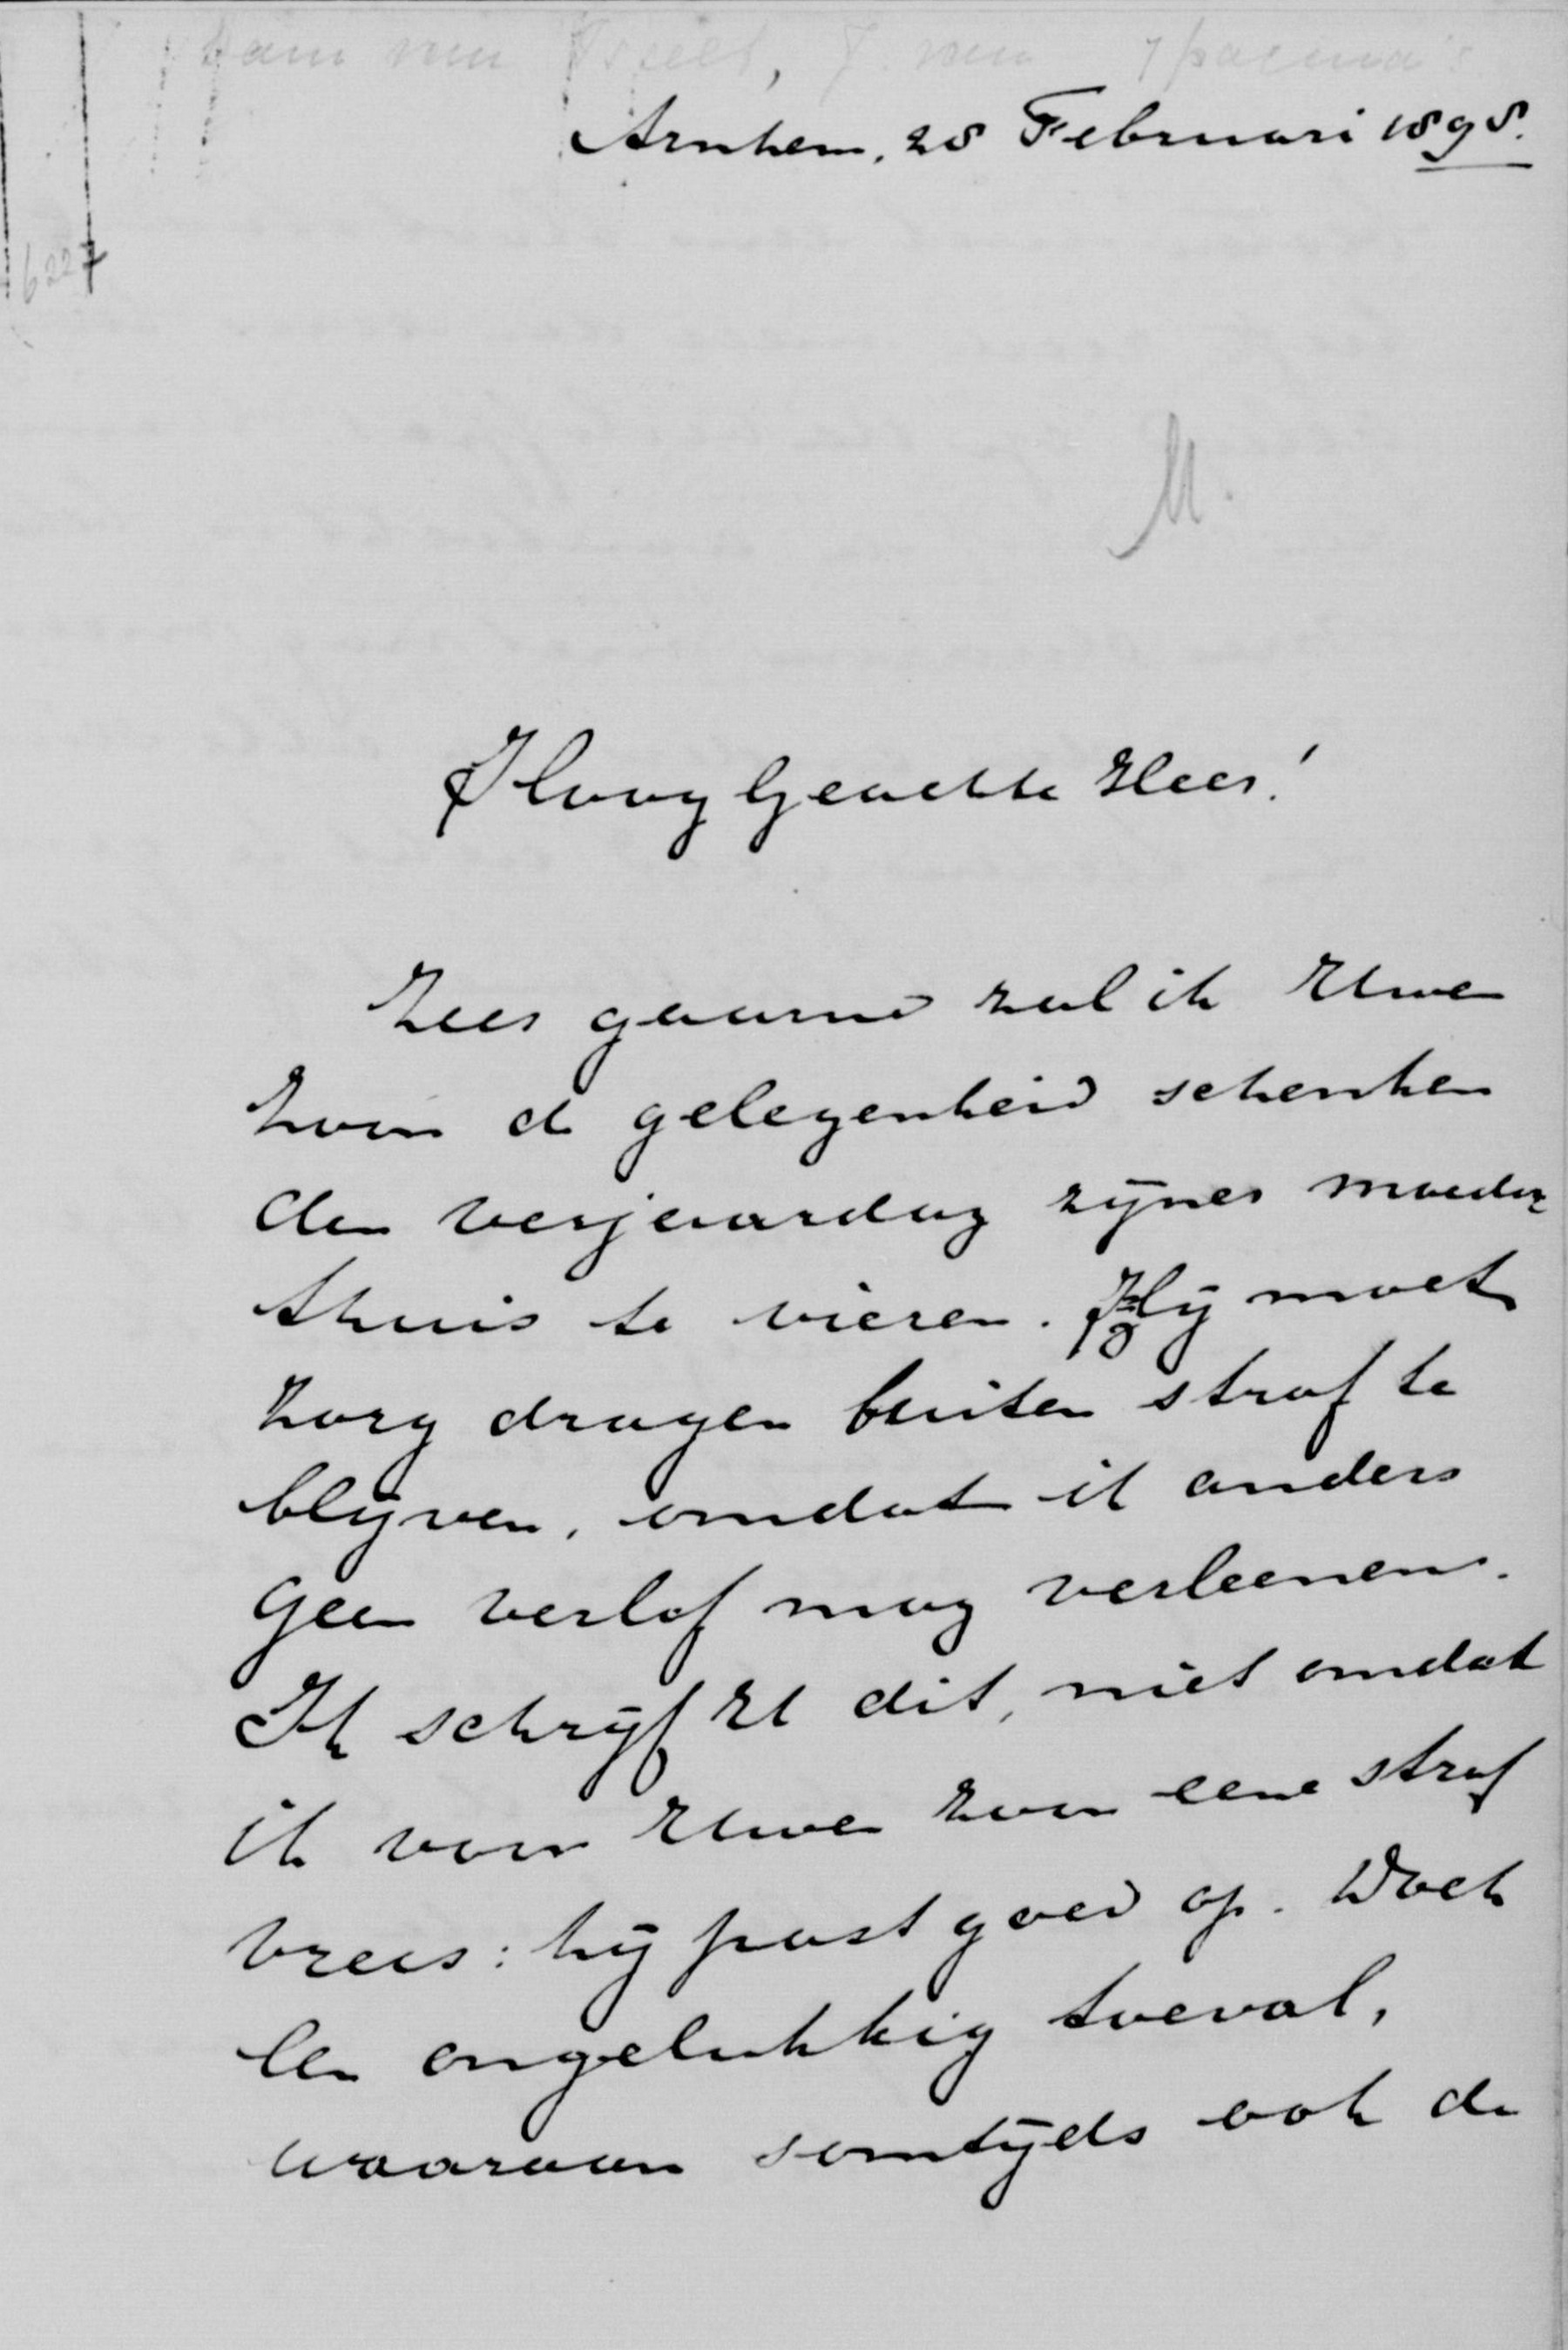 Arnhem, 28 Februari 1898.
6227
M.
HoogGeachte Heer!
Zeer gaarne zal ik Uwen
zoon de gelegenheid schenken
den verjaardag zijner moeder
thuis te vieren. Hij moet
zorg dragen buiten straf te
blijven, omdat ik anders
geen verlof mag verleenen.
Ik schrijf U dit, niet omdat
ik voor Uwen zoon eene straf
vrees: hij past goed op. Doch
een ongelukkig toeval,
waaraan somtijds ook de